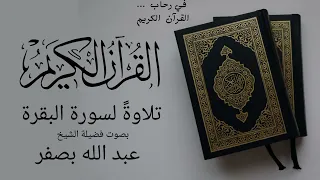 في رحاب ...
القرآن الكريم
القرآن الكريم
تلاوةً لسورة البقرة
بصوت فضيلة الشيخ
عبد الله بصفر